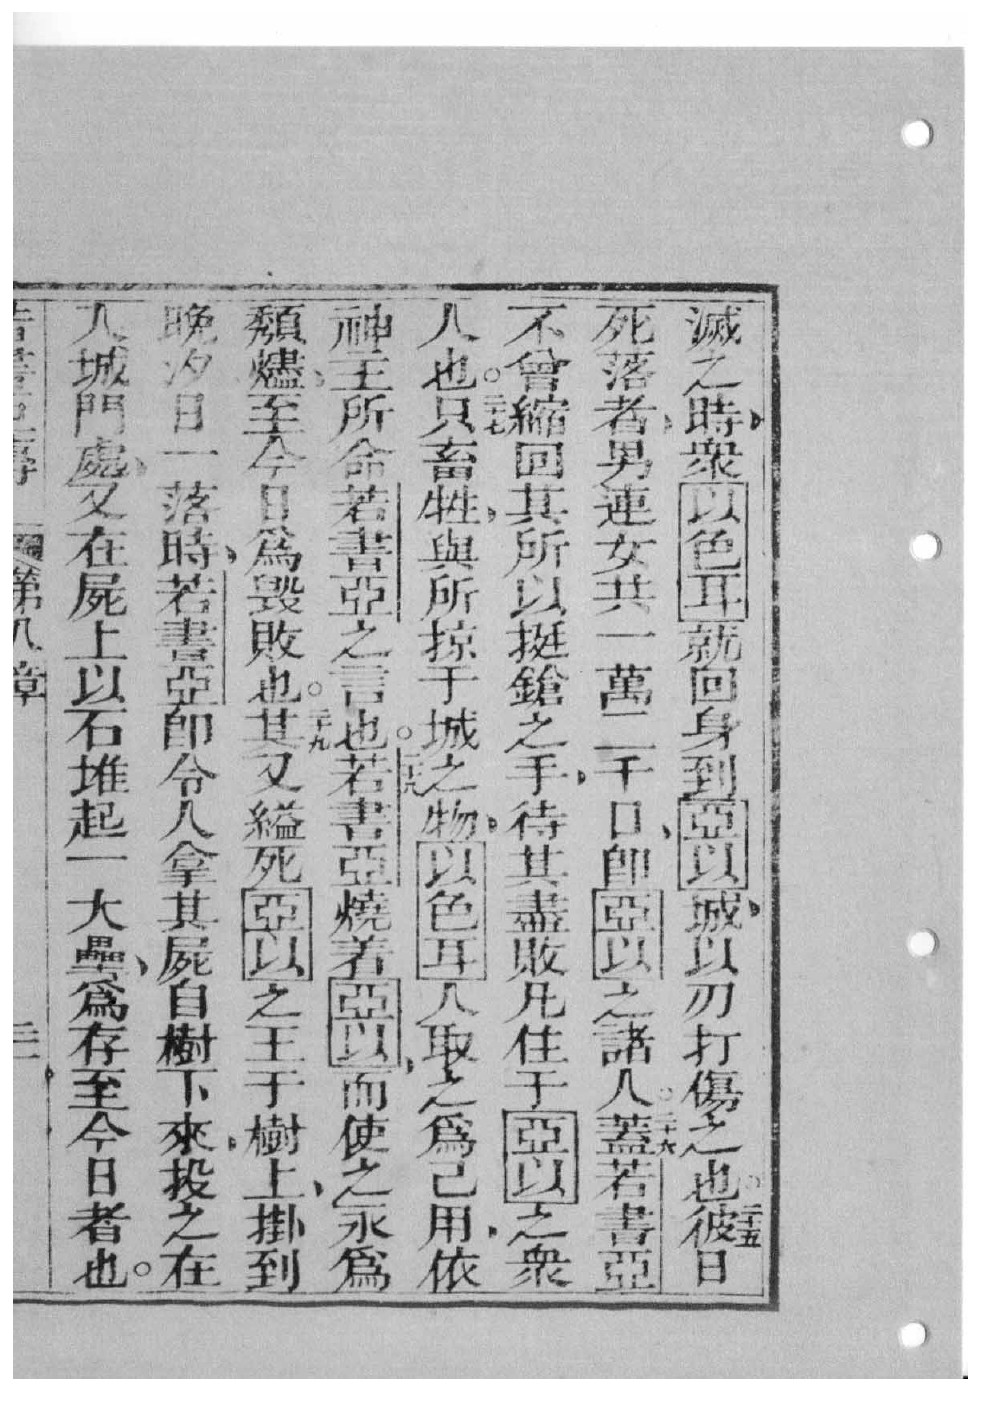 滅之時衆以色耳就回身到亞以城以刃打傷之也二十五彼日
死落者男連女共一萬二千口卽亞以之諸人二十六蓋若書亞
不曾縮回其所以挺鎗之手待其盡敗凡住于亞以之衆
人也二十七只畜牲與所掠于城之物以色耳人取之爲己用依
神主所命若書亞之言也二十八若書亞燒着亞以而使之永爲
頽燼至今日爲毀敗也二十九其又縊死亞以之王于樹上掛到
晚汐日一落時若書亞卽令人拿其屍自樹下來投之在
人城門處又在屍上以石堆起一大壘爲存至今日者也
第八章